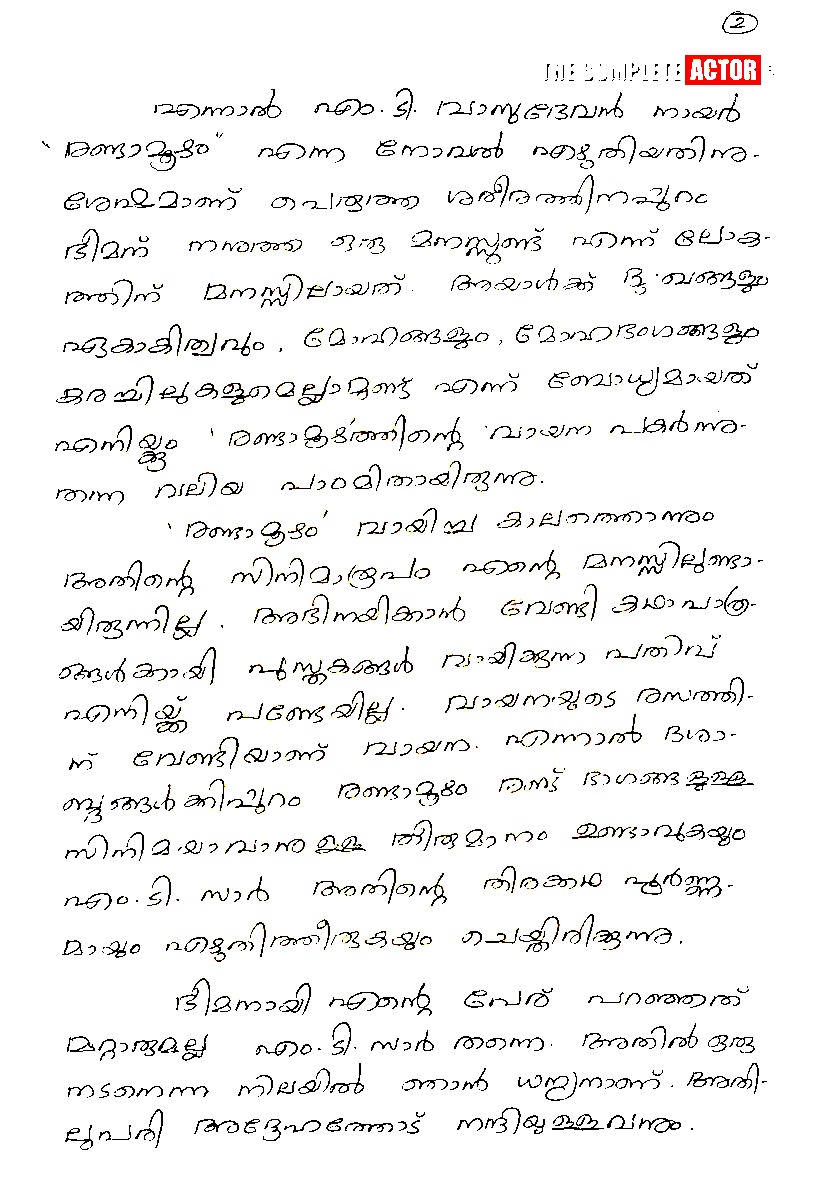 2
THE COMPLETE ACTOR
എന്നാൽ എം.ടി. വാസുദേവൻ നായർ
"രണ്ടാമൂഴം" എന്ന നോവൽ എഴുതിയതിനു-
ശേഷമാണ് പെരുത്ത ശരീരത്തിനപ്പുറം
ഭീമന് നനുത്ത ഒരു മനസ്സുണ്ട് എന്ന് ലോക-
ത്തിന് മനസ്സിലായത്. അയാൾക്ക് ദു:ഖങ്ങളും
ഏകാകിത്വവും, മോഹങ്ങളും, മോഹഭംഗങ്ങളും
കരച്ചിലുകളുമെല്ലാമുണ്ട് എന്ന് ബോധ്യമായത്
എനിയ്ക്കും 'രണ്ടാമൂഴ'ത്തിന്റെ വായന പകർന്നു-
തന്ന വലിയ പാഠമിതായിരുന്നു.
'രണ്ടാമൂഴം' വായിച്ച കാലത്തൊന്നും
അതിന്റെ സിനിമാരൂപം എന്റെ മനസ്സിലുണ്ടാ-
യിരുന്നില്ല. അഭിനയിക്കാൻ വേണ്ടി കഥാപാത്ര-
ങ്ങൾക്കായി പുസ്തകങ്ങൾ വായിക്കുന്ന പതിവ്
എനിയ്ക്ക് പണ്ടേയില്ല. വായനയുടെ രസത്തി-
ന് വേണ്ടിയാണ് വായന. എന്നാൽ ദശാ-
ബ്ദങ്ങൾക്കിപ്പുറം രണ്ടാമൂഴം രണ്ട് ഭാഗങ്ങളുള്ള
സിനിമയാവാനുള്ള തീരുമാനം ഉണ്ടാവുകയും
എം.ടി. സാർ അതിന്റെ തിരക്കഥ പൂർണ്ണ-
മായും എഴുതിത്തീരുകയും ചെയ്തിരിക്കുന്നു.
ഭീമനായി എന്റെ പേര് പറഞ്ഞത്
മറ്റാരുമല്ല എം.ടി. സാർ തന്നെ. അതിൽ ഒരു
നടനെന്ന നിലയിൽ ഞാൻ ധന്യനാണ്. അതി-
ലുപരി അദ്ദേഹത്തോട് നന്ദിയുള്ളവനും.